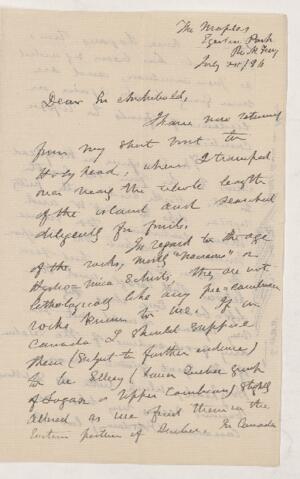 The Maples
Egerton Park
Rk. Ferry
July 25/96
Dear Sir Archibald,
I have now returned
from my short visit to
Holyhead, where I tramped
over nearly the whole length
of the island and searched
diligently for fossils.
In regard to the age
of the rocks, mostly "nacreous" or
Hydro-mica Schists, they are not
lithologically like any pre-cambrian
rocks known to me. If in
Canada I should suppose
them (Subject to further evidence)
to be Sillery (Lawer Quebec Group
of Logan = Upper Cambrian) slightly
altered as we find them in the
Eastern portion of Quebec. In Canada